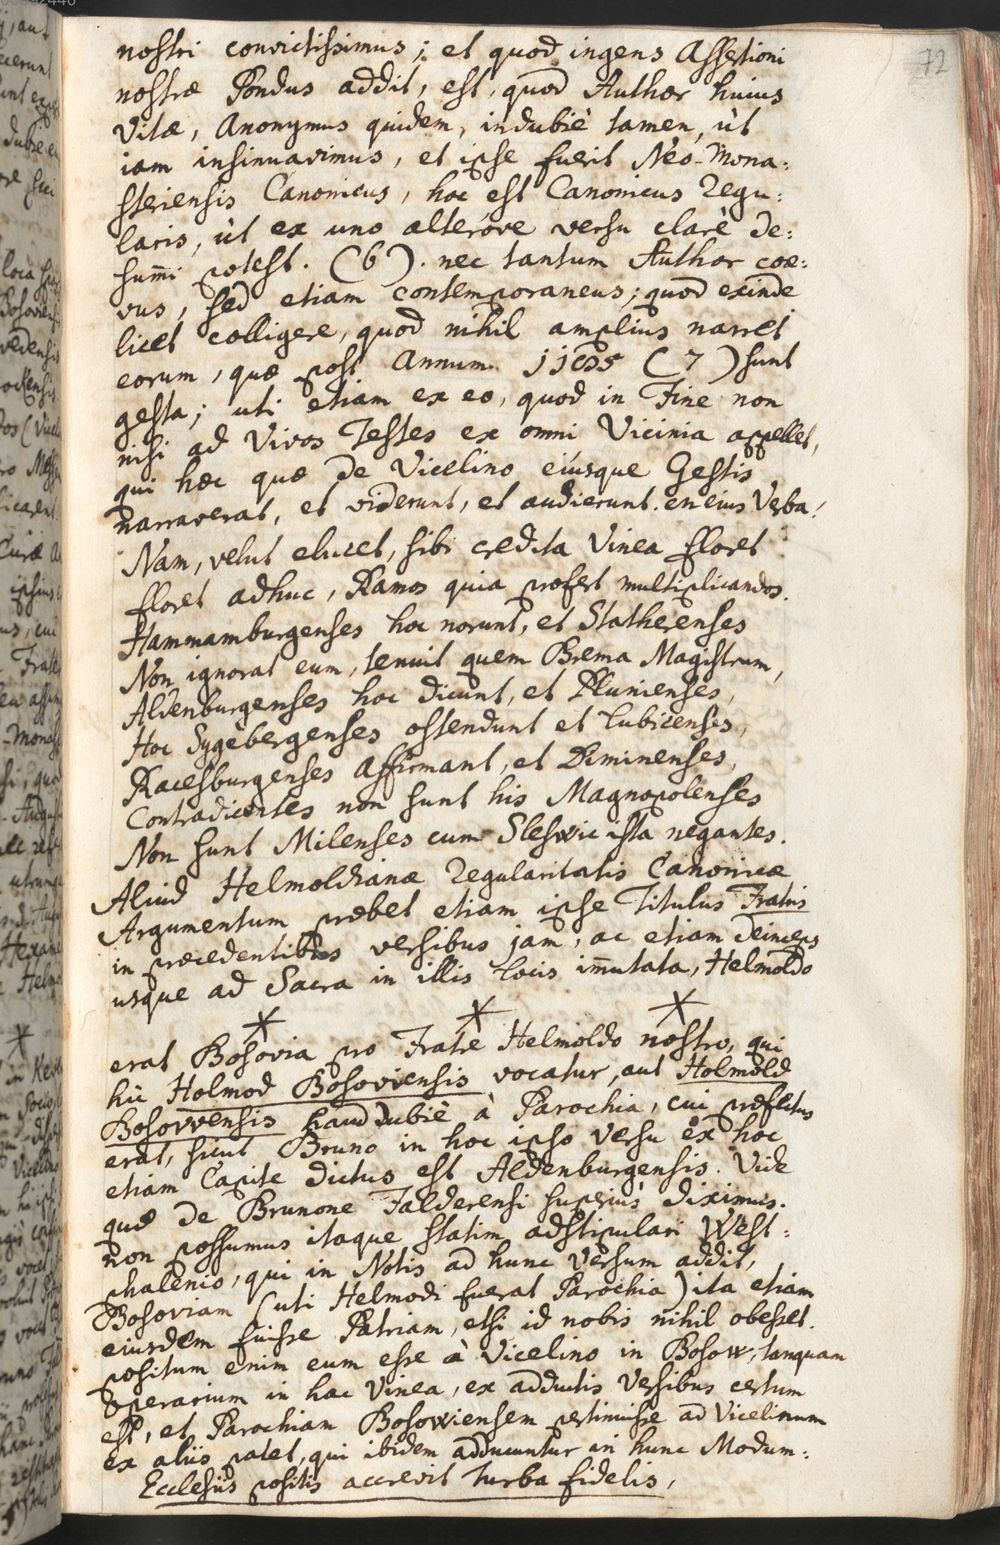 72
nostri convictissimus; et quod ingens Assertioni
nostræ Pondus addit, est, quod Author huius
Vitæ, Anonymus quidem, indubiè tamen, ùt
iam insinuavimus, et ipse fuerit Neo-Mona:
steriensis Canonicus, hoc est Canonicus Regu:
laris, ùt ex uno alteróve versu clarè de:
sumi potest. (6). nec tantum Author coæ:
vus, sed etiam contemporaneus; quod exinde
licet colligere, quod nihil amplius narret
eorum, quæ post Annum (7) sunt
gesta; uti etiam ex eo, quod in Fine non
nisi ad Vivos Testes ex omni Vicinia appellet,
qui hæc quæ de Vicelino eiusque Gestis
narraverat, et viderunt, et audierunt. en eius Verba,
Nam, velut elucet, sibi credita Vinea floret
floret adhuc, Ramos quia profert multiplicandos.
Hammamburgenses hoc norunt, et Statherenses
Non ignorat eum, tenuit quem Brema Magistrum,
Aldenburgenses hoc dicunt, et Plunienses,
Hoc Sygebergenses ostendunt et Lubicenses,
Racesburgenses affirmant, et Diminenses,
Contradicentes non sunt his Magnopolenses
Non sunt Milenses cum Sleswic ista negantes.
Aliud Helmoldianæ Regularitatis Canonicæ
Argumentum præbet etiam ipse Titulus Fratris
in præcedentibus versibus jam, ac etiam deinceps
usque ad Sacra in illis locis immutata, Helmoldo
* * *
erat Bosovia pro Fratre Helmoldo nostro, qui
hic Holmod Bosoviensis vocatur, aut Holmold
Bosovvensis haud dubiè à Parochia, cui præfectus
erat, sicut Bruno in hoc ipso Versu ex hoc
etiam Capite dictus est Aldenburgensis. Vide
quæ de Brunone Falderensi superiùs diximus.
non possumus itaque statim adstipulari West:
phalenio, qui in Notis ad hunc Versum addit,
Bosoviam (uti Helmodi fuerat Parochia) ita etiam
eiusdem fuisse Patriam, etsi id nobis nihil obesset.
positum enim eum esse à Vicelino in Bosow, tanquam
operarium in hac Vinea, ex adductis Versibus certum
est, et Parochiam Bosowiensem pertinuisse ad Vicelinum
ex aliis patet, qui ibidem adducuntur in hunc Modum:
Ecclesiis positis accrevit turba fidelis,